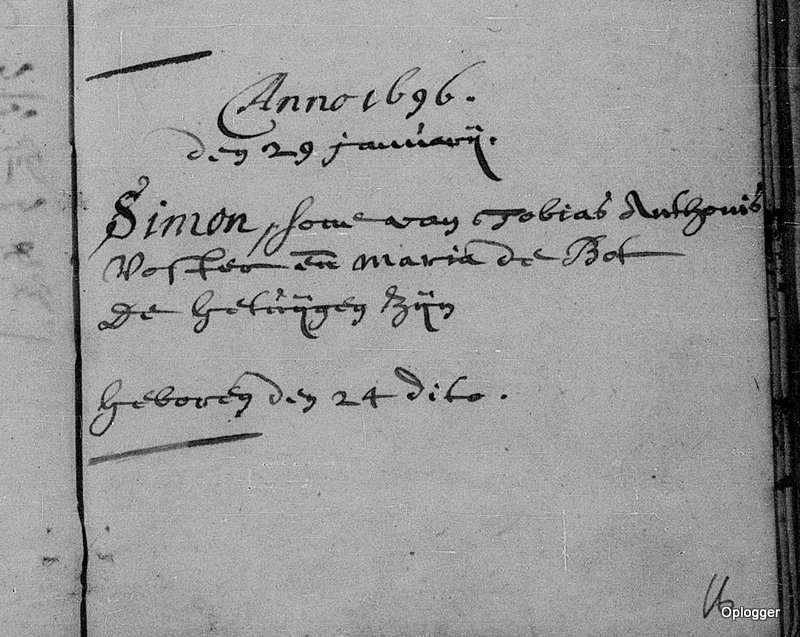 Anno 1696.
den 29 januarij.
Simon, sone van Tobias Anthonis
Voster en maria de Bot
De getuijgen zijn
geboren den 24 dito.
Oplogger